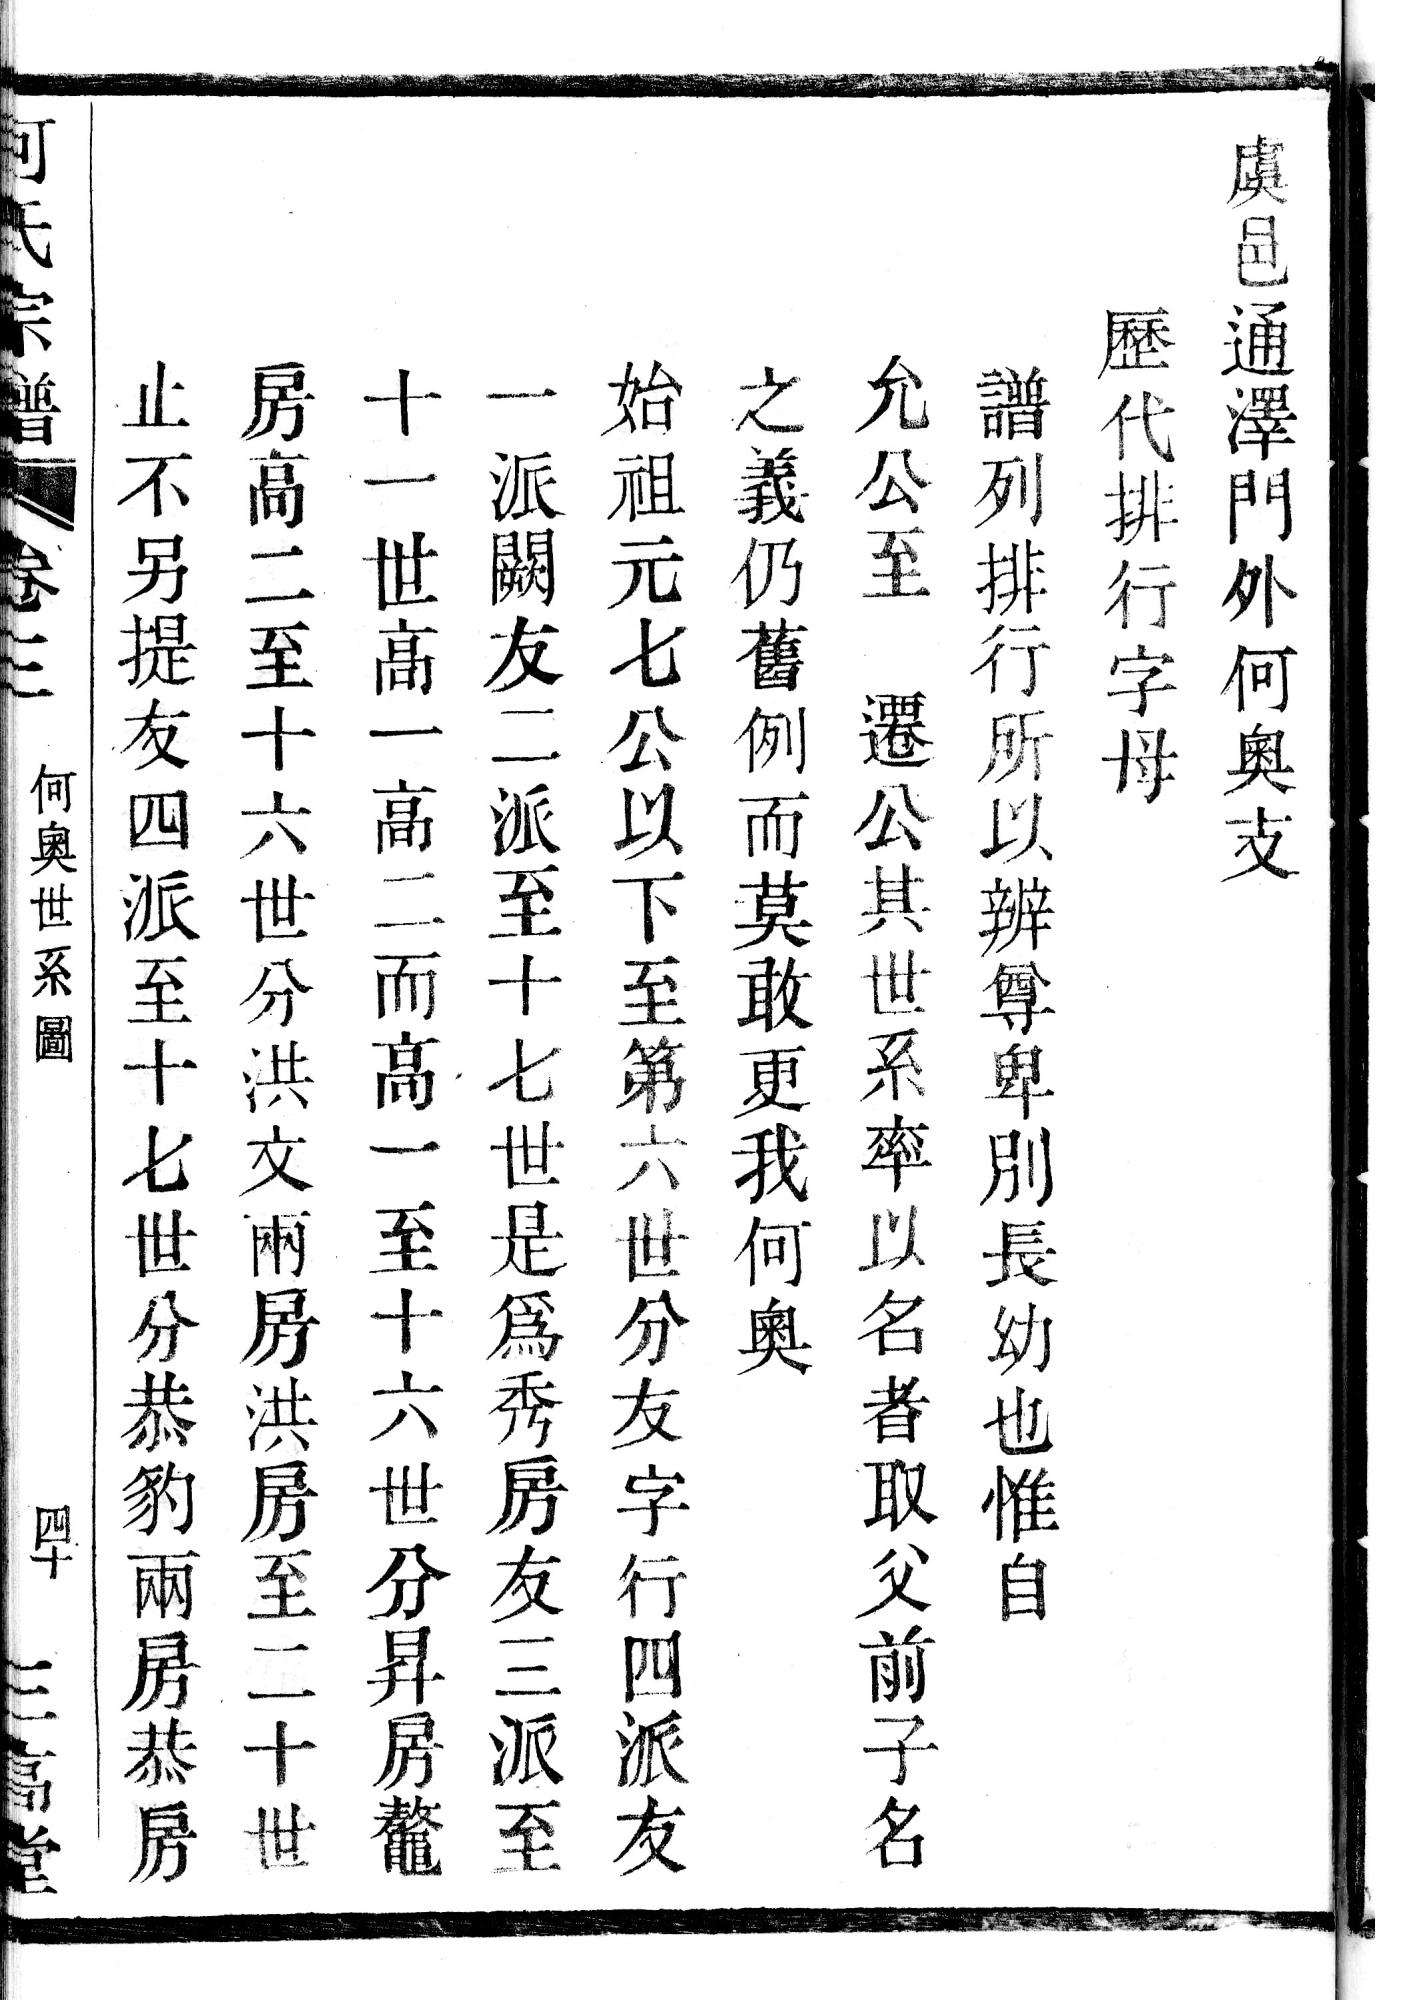 虞邑通澤門外何奧支
歷代排行字母
譜列排行所以辨尊卑別長幼也惟自
允公至　遷公其世系率以名者取父前子名
之義仍舊例而莫敢更我何奧
始祖元七公以下至第六世分友字行四派友
一派闕友二派至十七世是爲秀房友三派至
十一世高一高二而高一至十六世分昇房鼇
房高二至十六世分洪文兩房洪房至二十世
止不另提友四派至十七世分恭豹兩房恭房
何氏宗譜
卷三
何奧世系圖
四十
三高堂